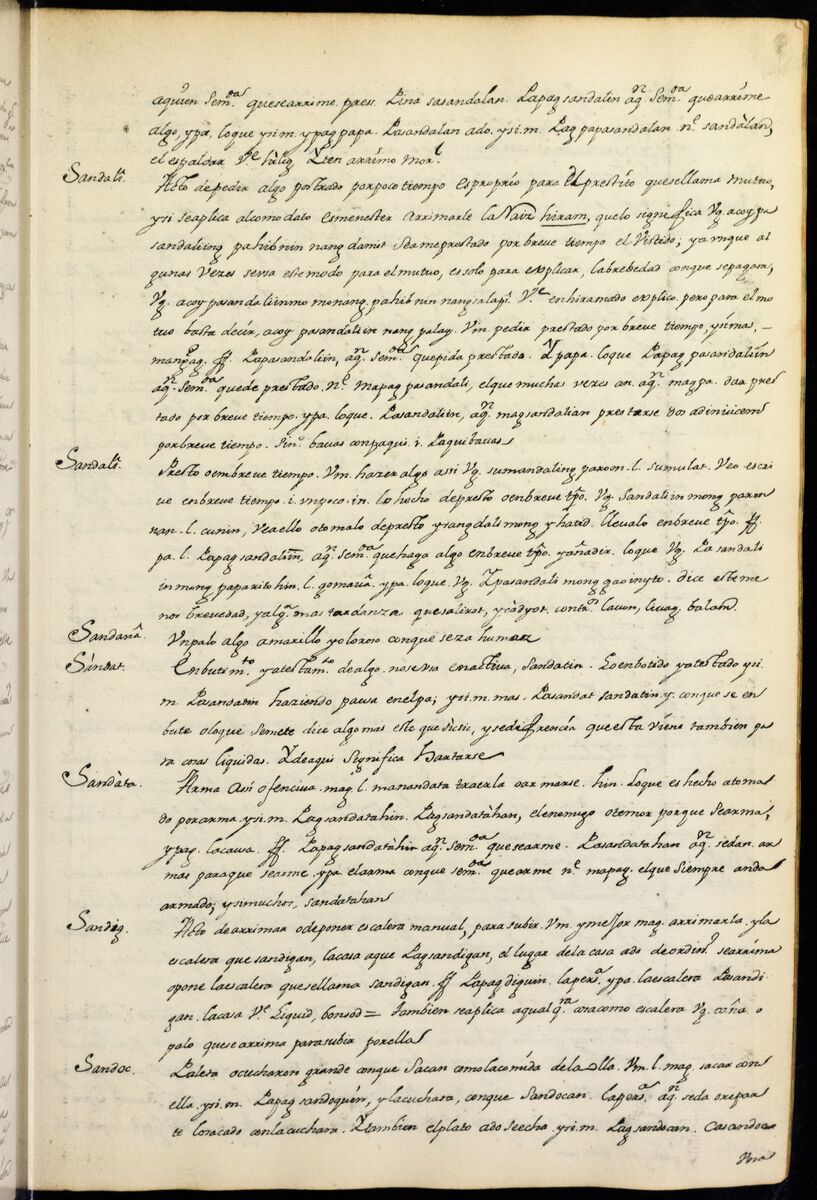 aquien sem.da quesearrime. press. Pina sasandalan. Papagsandaliin aq.n sem.da quearríme
algo, ypa, loque ysi.m. ypagpapa. Pasandalan ado. ysi.m. Pag papasandalan n.e sandàlan,
el espaldar V.e Yten arrímo mor.l
Sandalî. Acto depedir algo postrado porpoco tiempo esproprío para el prestíto quesellama mutuo,
ysi seaplica alcomodato esmenester arrimarle la Naiz hiram, quelo significa Vg. acoy pa
sandaliing pahibnin nang damit sea meprestado porbreve tiempo el Vestido; yaunque al
gunas vezes sersa estemodo para elmutuo, essolo para explicar, labrebedad conque sepagara,
Vg. acoy pasandaliinmo monang pahibnin nangsalapî. V.de enhiramado explico. pero para elmo
tuo basta decír, acoy pasandaliin nang palay. Vm pedir prestado porbreve tiempo, ysimas,
manpag. ff. Papasandaliin, aq.n sem.da quepida prestado. Y papa. loque Papag pasandaliin
aq.n sem.da quede prestado, n.e Mapag pasandali, elque muchas vezes an. aq.n magpa. daa pres
tado porbreve tiempo. ypa. loque. Pasandaliin, aq.n magsandalian prestarse dos adinvicem
porbreve tiempo. Sin.o bauas conpaqui. i. Paquibauas
Sandalî. Presto oembreve tiempo. Vm. hazer algo assi Vg. sumandaling paroon. l. sumulat. Veo escri
ve enbreve tiempo. i. vnpoco. in. lo hecho depresto oenbreve tp̃o. Vg. Sandaliin mong paron
nan. l. cunin, veaello otomalo depresto ysangdali mong yhatid. lleualo enbreve tp̃o. ff.
pa. l. Papagsandaliin. aq.n sem.da quehaga algo enbreve tp̃o. yañadir. loque Vg. Pasandali
in mong paparitohin. l. gomauâ. ypa. loque. Vg. Ypasandali mong gaoinyto. dice esteme
nos brevedad, yalg.a mas tardanza quesaliuot, ycàgyot. contr.o lauon, liuag, balam.
Sandanâ. Vnpalo algo amarillo yoloroso conque seza human
Sándat. Enbutim.to yatestam.to dealgo. nosevsa enactiua, sandatin. Loenbotido yatestado ysi.
m. Pasandatin haziendo pausa enelpa; ysi.m.mas. Pasandat sandatin y. conque se en
bute oloque semete dice algomas este que sicsic, ysediferencía queesta víene tambien pa
ra cosas liquidas. Ydeaqui significa Hartarse
Sandàta. Arma Asi ofenciua. mag. l. manandata traerla oarmarse. hin. Loque es hecho atoma
do porarma ysi.m. Pagsandatahin. Pagsandatàhan, elenemigo otemor porque searma;
ypag. lacausa. ff. Papagsandatàhin aq.n sem.da quesearme. Pasandatahan aq.n sedan. ar
mas paraque searme. ypa elarma conque sem.da quearme n.e mapag. elque siempre anda
armado; ysimuchos, sandatahan
Sandig. Acto dearrimar odeponer escalera manual, para subir. Vm. ymejor mag. arrimarla. yla
escalera quesandigan, lacasa aque Pagsandigan, el lugar dela casa ado deordin.o searríma
opone laescalera quesellama sandigan. ff Papagdiguin. lapers.a ypa. laescalera Pasandi
gan. lacasa V.e Liquid, bonsod = tambien seaplica aqualq.ra cosacomo escalera Vg. caña o
palo quesearrima parasubir porella
Sandoc. Paleta ocucharon grande conque sacan comolacomída dela olla. Vm. l. mag. sacar con
ella. ysi.m. Papagsandoquin, ylacuchara, conque Sandocan. lapers.a aq.n seda orepar
te losacado conlacuchara. Ytambien elplato ado seecha. ysi.m. Pagsandocan. casandoc
vna